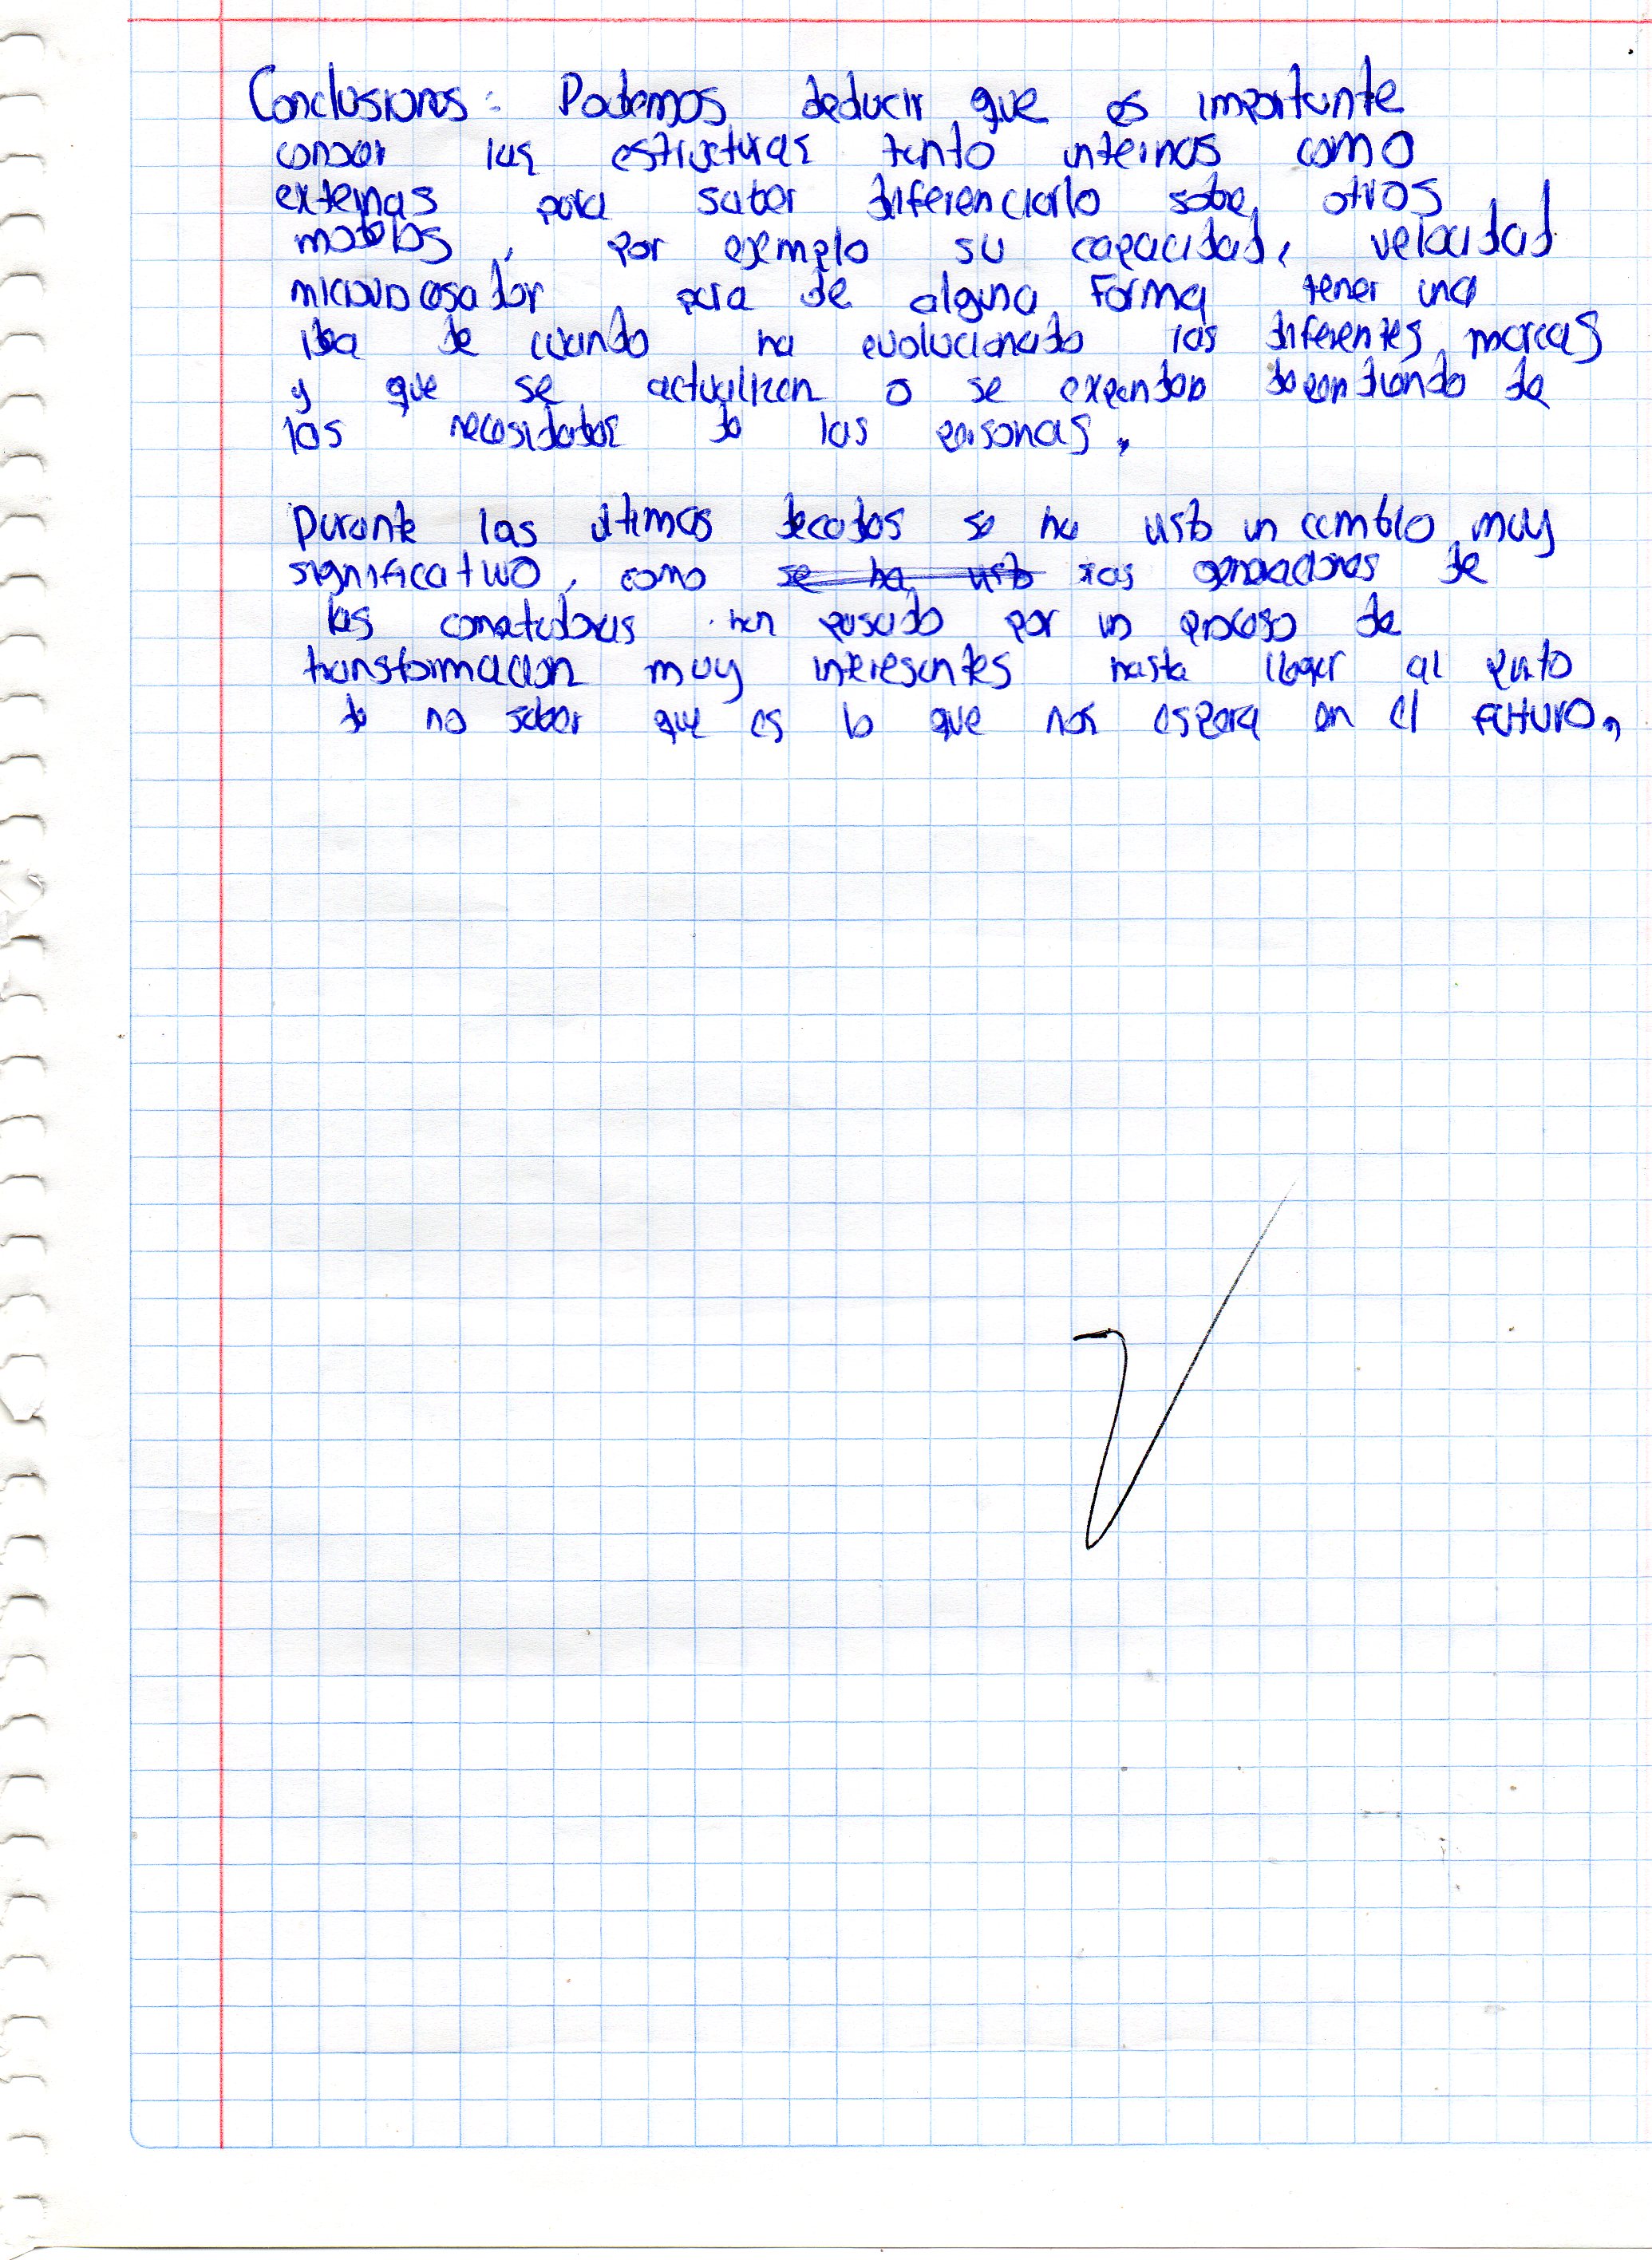 Conclusiones: Podemos deducir que es importante
conocer las estructuras tanto internas como
externas para saber diferenciarlo sobre otros
modelos, por ejemplo su capacidad, velocidad
para de alguna forma tener una
idea de cuando ha evolucionado las diferentes marcas
y que se actualizen o se expanden dependiendo de
las necesidades de las personas.
Durante las ultimas decadas se ha visto un cambio muy
significativo, como se ha visto las generaciones de
las han pasado por un proceso de
transformacion muy interesantes hasta llegar al punto
de no saber que es lo que nos espera en el futuro,